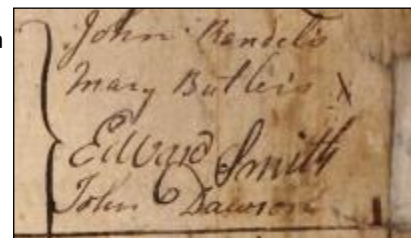 John Randel's
Mary Butler's X
Edward Smith
John Dawson